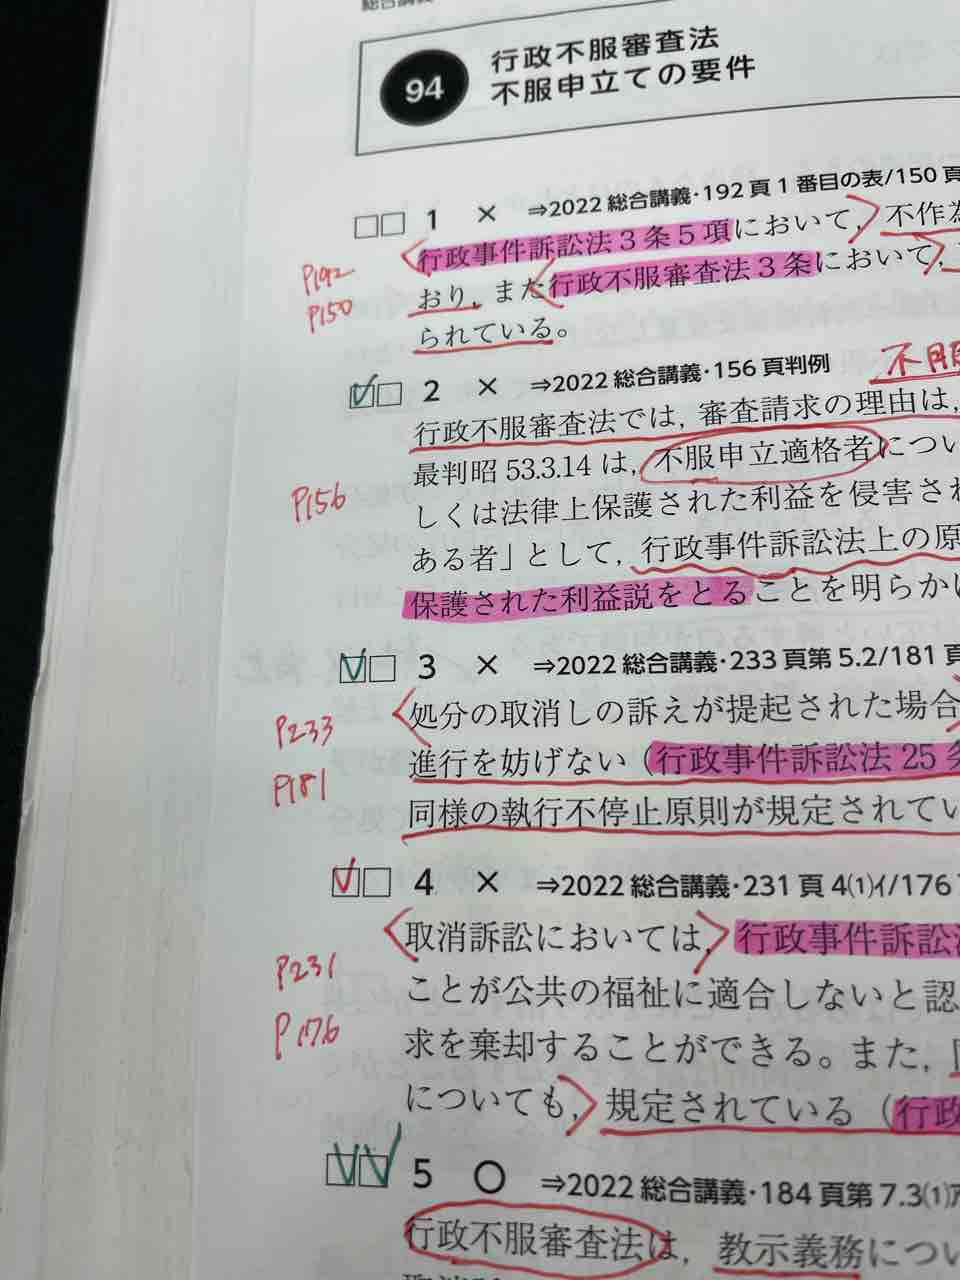 総合講義
94
行政不服審査法
不服申立ての要件
□□ 1 × ⇒2022 総合講義・192 頁 1 番目の表/150 頁
行政事件訴訟法3条5項において，不作為
P192
おり，また行政不服審査法3条において，
P150
られている。
□□ 2 × ⇒2022 総合講義・156 頁判例
不服
行政不服審査法では，審査請求の理由は，
最判昭 53.3.14 は，不服申立適格者につい
P156
しくは法律上保護された利益を侵害され
ある者」として，行政事件訴訟法上の原
保護された利益説をとることを明らかに
□□ 3 × ⇒2022 総合講義・233 頁第 5.2/181 頁
処分の取消しの訴えが提起された場合
P233
進行を妨げない（行政事件訴訟法 25 条
P181
同様の執行不停止原則が規定されてい
□□ 4 × ⇒2022 総合講義・231 頁 4⑴イ/176
取消訴訟においては，行政事件訴訟法
P231
ことが公共の福祉に適合しないと認
P176
求を棄却することができる。また，
についても，規定されている（行政
□□ 5 ○ ⇒2022 総合講義・184 頁第 7.3⑴ア
行政不服審査法は，教示義務につい